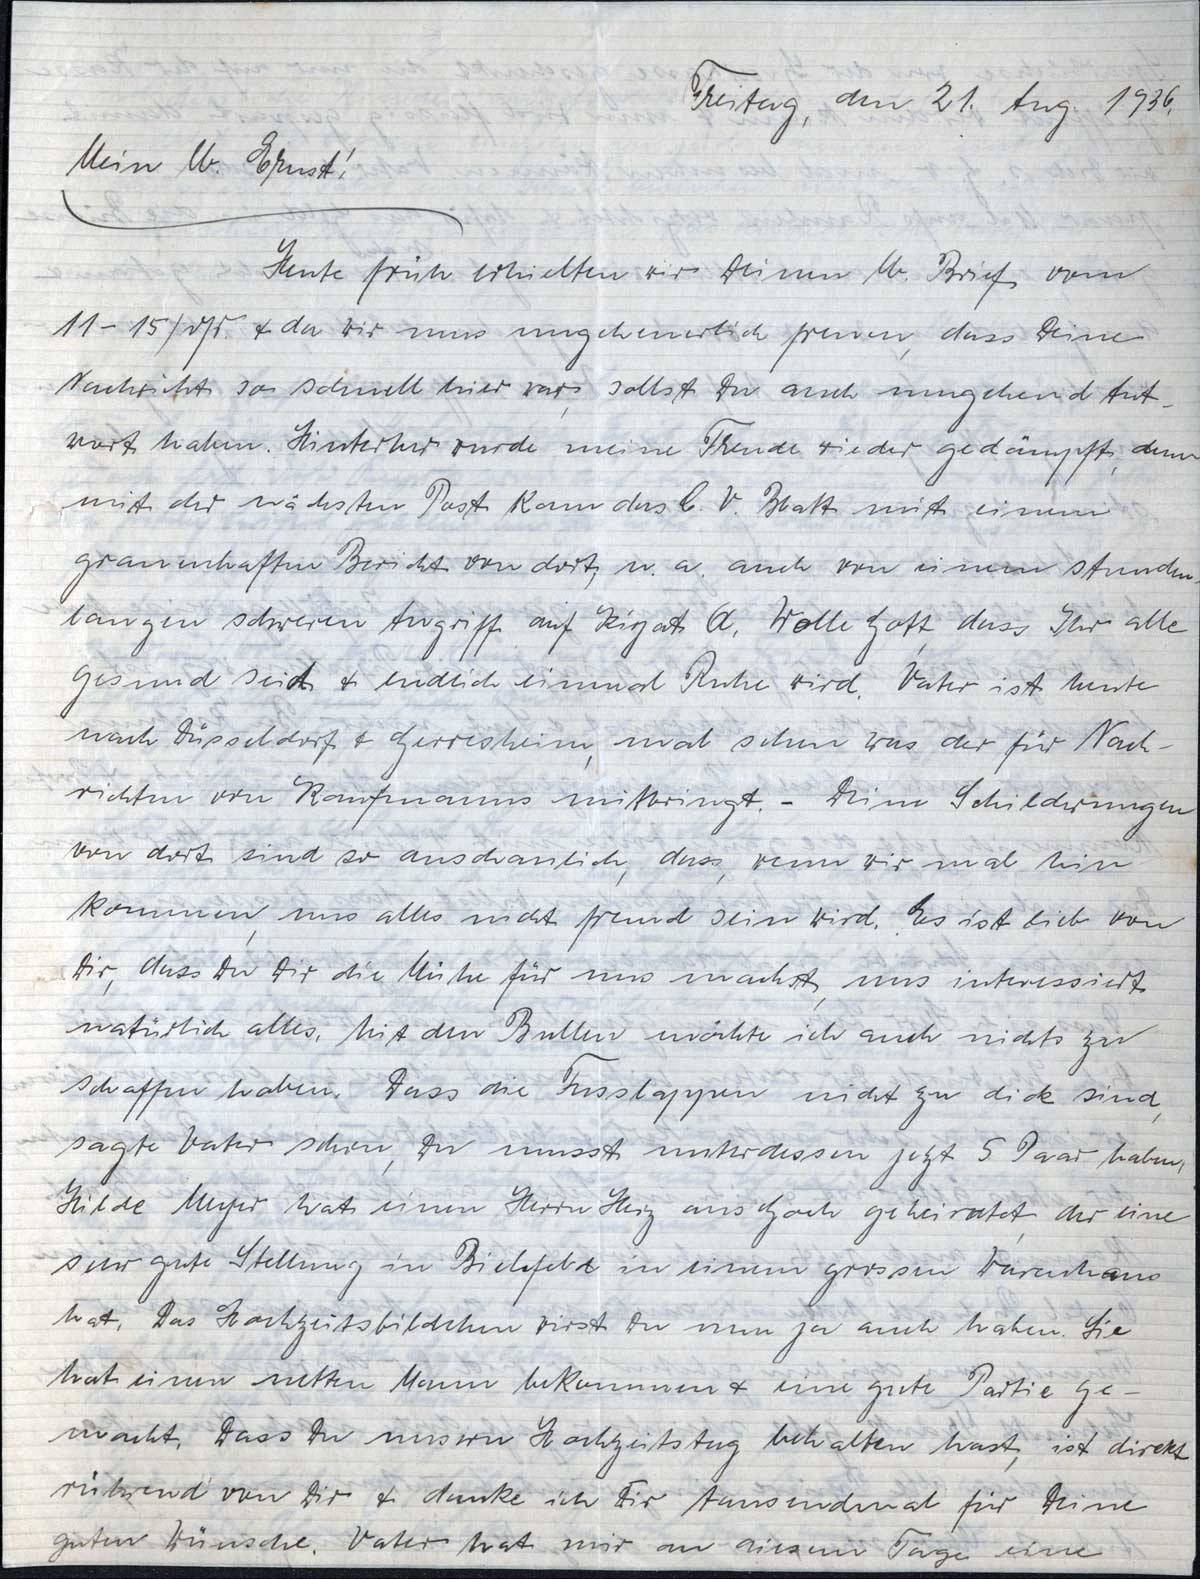 Freitag, den 21. Aug. 1936.
Mein lb. Ernst!
Heute früh erhielten wir Deinen lb. Brief vom
11-15/ds. & da wir uns ungeheuerlich freuen, dass Deine
Nachricht so schnell hier war, sollst Du auch umgehend Ant-
wort haben. Hinterher wurde meine Freude wieder gedämpft, denn
mit der nächsten Post kam das C. V. Blatt mit einem
grauenhaften Bericht von dort, u. a. auch von einem stunden-
langen schweren Angriff auf Kirjat A. Wolle Gott, dass Ihr alle
gesund seid & endlich einmal Ruhe wird. Vater ist heute
nach Düsseldorf & Gerresheim, mal sehen was der für Nach-
richten von Kaufmanns mitbringt. - Deine Schilderungen
von dort sind so anschaulich, dass, wenn wir mal hin
kommen, uns alles nicht fremd sein wird. Es ist lieb von
Dir, dass Du Dir die Mühe für uns machst, uns interessiert
natürlich alles. Mit den Bullen möchte ich auch nichts zu
schaffen haben. Dass die Fusslappen nicht zu dick sind,
sagte Vater schon, Du musst unterdessen jetzt 5 Paar haben.
Hilde Meyer hat einen Herrn Herz aus Goch geheiratet, der eine
sehr gute Stellung in Bielefeld in einem grossen Warenhaus
hat. Das Hochzeitsbildchen wirst Du nun ja auch haben. Sie
hat einen netten Mann bekommen & eine gute Partie ge-
macht. Dass Du unsern Hochzeitstag behalten hast, ist direkt
rührend von Dir & danke ich Dir tausendmal für Deine
guten Wünsche. Vater hat mir an diesem Tage eine